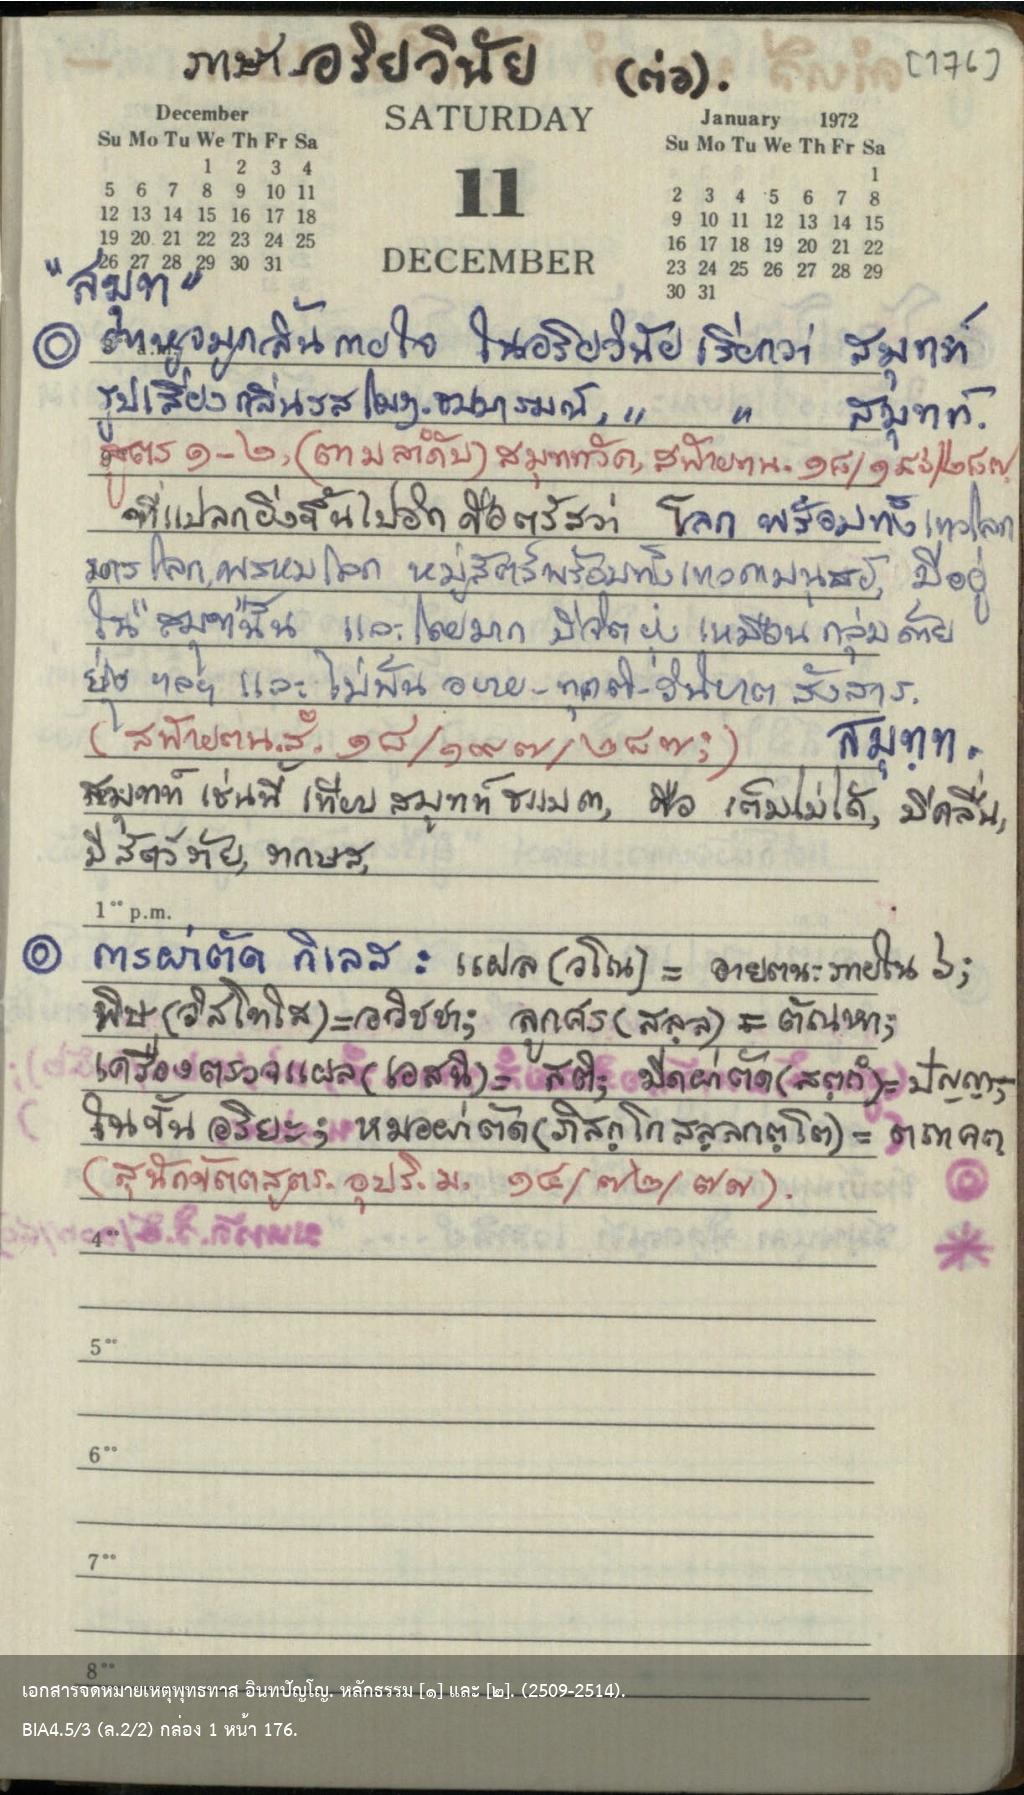 ภาษาอริยวินัย (ต่อ). [176]
December
Su Mo Tu We Th Fr Sa
1 2 3 4
5 6 7 8 9 10 11
12 13 14 15 16 17 18
19 20 21 22 23 24 25
26 27 28 29 30 31
SATURDAY
11
DECEMBER
January 1972
Su Mo Tu We Th Fr Sa
1
2 3 4 5 6 7 8
9 10 11 12 13 14 15
16 17 18 19 20 21 22
23 24 25 26 27 28 29
30 31
"สมุท"
หูจมูกลิ้นกายใจ ในอริยวินัย เรียกว่า สมุทท์
รูปเสียงกลิ่นรส ธมมารมณ์, " " สมุทท์.
สูตร ๑-๒, (ตามลำดับ) สมุททวัค, สฬายตน.
ที่แปลกยิ่งขึ้นไปอีก คือตรัสว่า โลก พร้อมทั้ง เทวโลก
มารโลก, พรหมโลก หมู่สัตว์พร้อมทั้งเทวดามนุสย์, มีอยู่
ใน"สมุท"นั้น และโดยมาก เหมือน กลุ่มด้าย
ยุ่ง ฯลฯ และ ไม่พ้น อบาย-ทุคติ-วินิบาต สังสาร.
(สฬายตน.สํ. ๑๘/๑๙๗/๒๘๗;) สมุทฺท.
สมุทท์ เช่นนี้ เทียบ สมุทท์ ธมมดา, คือ เต็มไม่ได้, มีคลื่น,
มีสัตว์ร้าย,
1 p.m.
การผ่าตัด กิเลส : แผล (วโณ) = อายตนะภายใน ๖;
พิษ (วิสโทโส)=อวิชชา; ลูกศร (สลฺล) = ตัณหา;
เครื่องตรวจแผล (เอสนี)= สติ; มีดผ่าตัด (สตฺถํ)= ปัญญา;
ในขั้น อริยะ; หมอผ่าตัด (ภิสกฺโก สลฺลกตฺโต) = ตถาคต
(สุนักขัตตสูตร. อุปริ. ม. ๑๔/๗๒/๗๗).
4
5
6
7
8
เอกสารจดหมายเหตุพุทธทาส อินทปัญโญ. หลักธรรม [๑] และ [๒]. (2509-2514).
BIA4.5/3 (ล.2/2) กล่อง 1 หน้า 176.